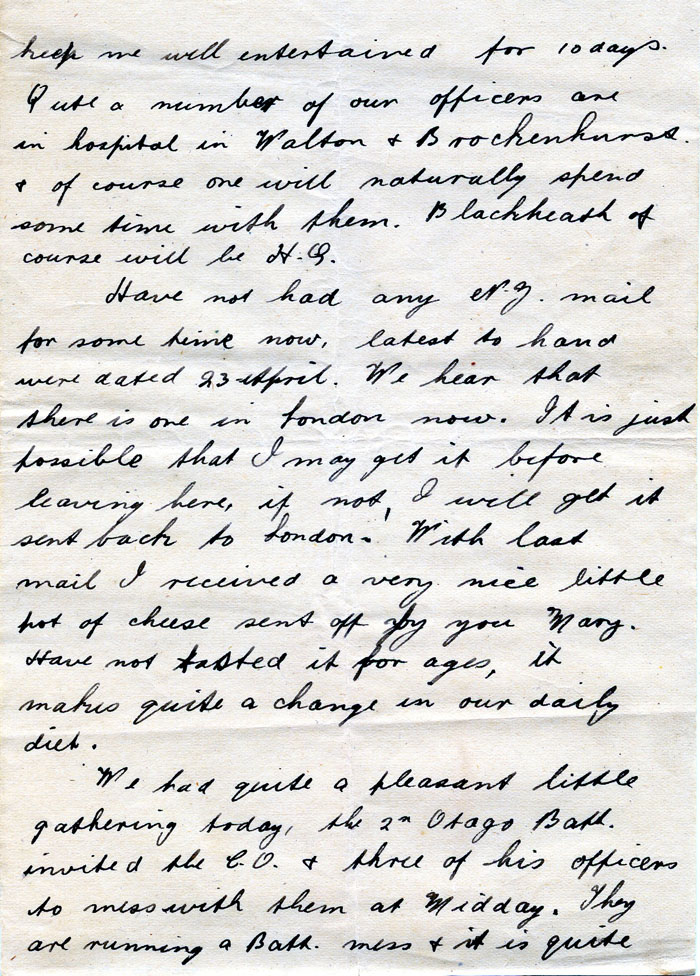 keep me well entertained for 10 days.
Quite a number of our officers are
in hospital in Walton & Brockenhurst.
& of course one will naturally spend
some time with them. Blackheath of
course will be H.Q.
Have not had any N.Z. mail
for some time now, latest to hand
were dated 23 April. We hear that
there is one in London now. It is just
possible that I may get it before
leaving here, if not, I will get it
sent back to London. With last
mail I received a very nice little
pot of cheese sent off by you Mary.
Have not tasted it for ages, it
makes quite a change in our daily
diet.
We had quite a pleasant little
gathering today, the 2n Otago Batt.
invited the C.O. & three of his officers
to mess with them at Midday. They
are running a Batt. mess & it is quite